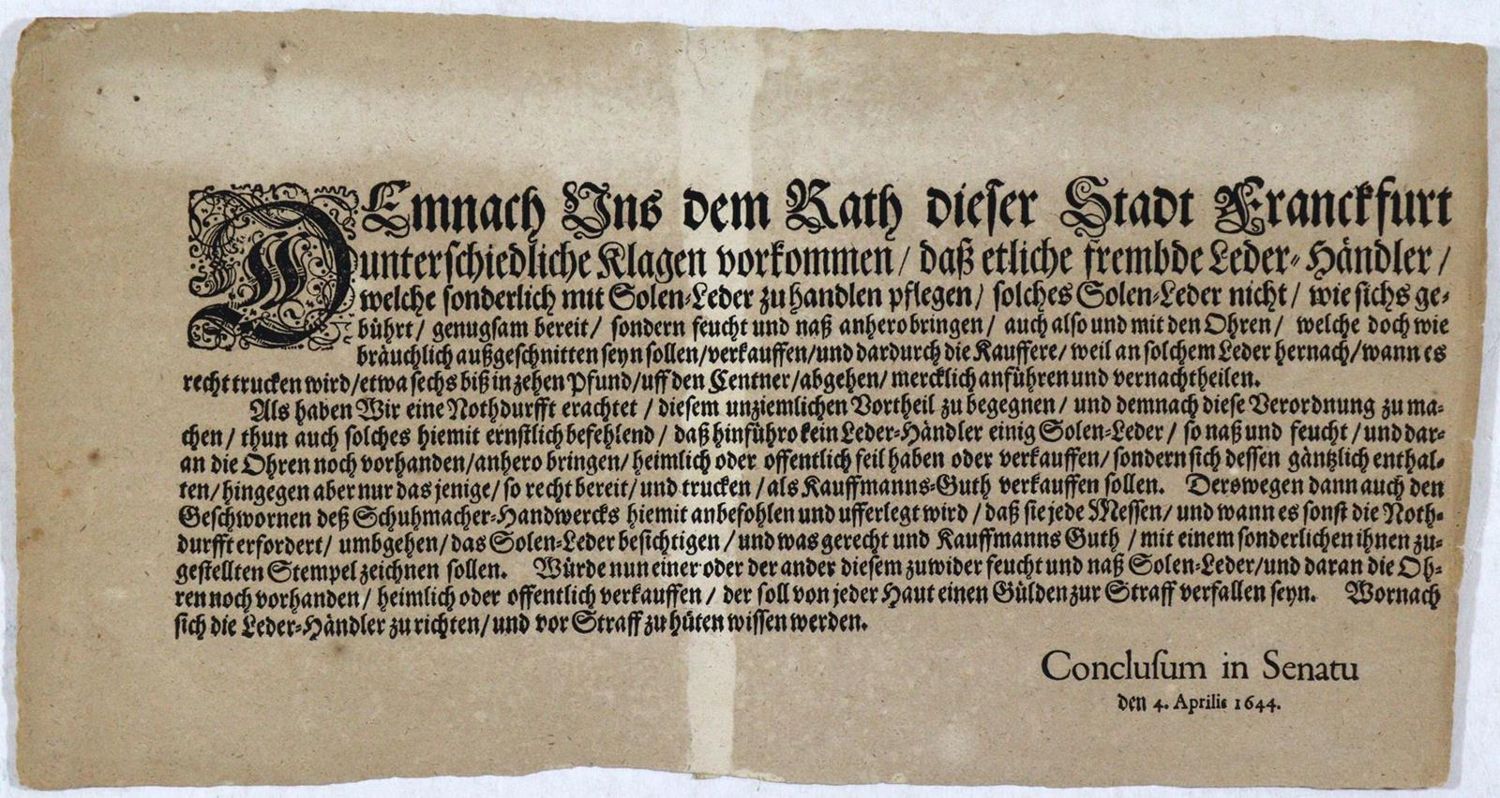 DEmnach Vns dem Rath dieser Stadt Franckfurt
unterschiedliche Klagen vorkommen / daß etliche frembde Leder-Händler /
welche sonderlich mit Solen-Leder zu handlen pflegen / solches Solen-Leder nicht / wie sichs ge-
bührt / genugsam bereit / sondern feucht und naß anhero bringen / auch also und mit den Ohren / welche doch wie
bräuchlich außgeschnitten seyn sollen / verkauffen / und dardurch die Kauffere / weil an solchem Leder hernach / wann es
recht trucken wird / etwa sechs biß in zehen Pfund / uff den Centner / abgehen / mercklich anführen und vernachtheilen.
Als haben Wir eine Nothdurfft erachtet / diesem unziemlichen Vortheil zu begegnen / und demnach diese Verordnung zu ma-
chen / thun auch solches hiemit ernstlich befehlend / daß hinführo kein Leder-Händler einig Solen-Leder / so naß und feucht / und dar-
an die Ohren noch vorhanden / anhero bringen / heimlich oder offentlich feil haben oder verkauffen / sondern sich dessen gäntzlich enthal-
ten / hingegen aber nur das jenige / so recht bereit / und trucken / als Kauffmanns-Guth verkauffen sollen. Derowegen dann auch den
Geschwornen deß Schuhmacher-Handwercks hiemit anbefohlen und ufferlegt wird / daß sie jede Messen / und wann es sonst die Noth-
durfft erfordert / umbgehen / das Solen-Leder besichtigen / und was gerecht und Kauffmanns Guth / mit einem sonderlichen ihnen zu-
gestellten Stempel zeichnen sollen. Würde nun einer oder der ander diesem zuwider feucht und naß Solen-Leder / und daran die Oh-
ren noch vorhanden / heimlich oder offentlich verkauffen / der soll von jeder Haut einen Gülden zur Straff verfallen seyn. Wornach
sich die Leder-Händler zu richten / und vor Straff zu hüten wissen werden.
Conclusum in Senatu
den 4. Aprilis 1644.